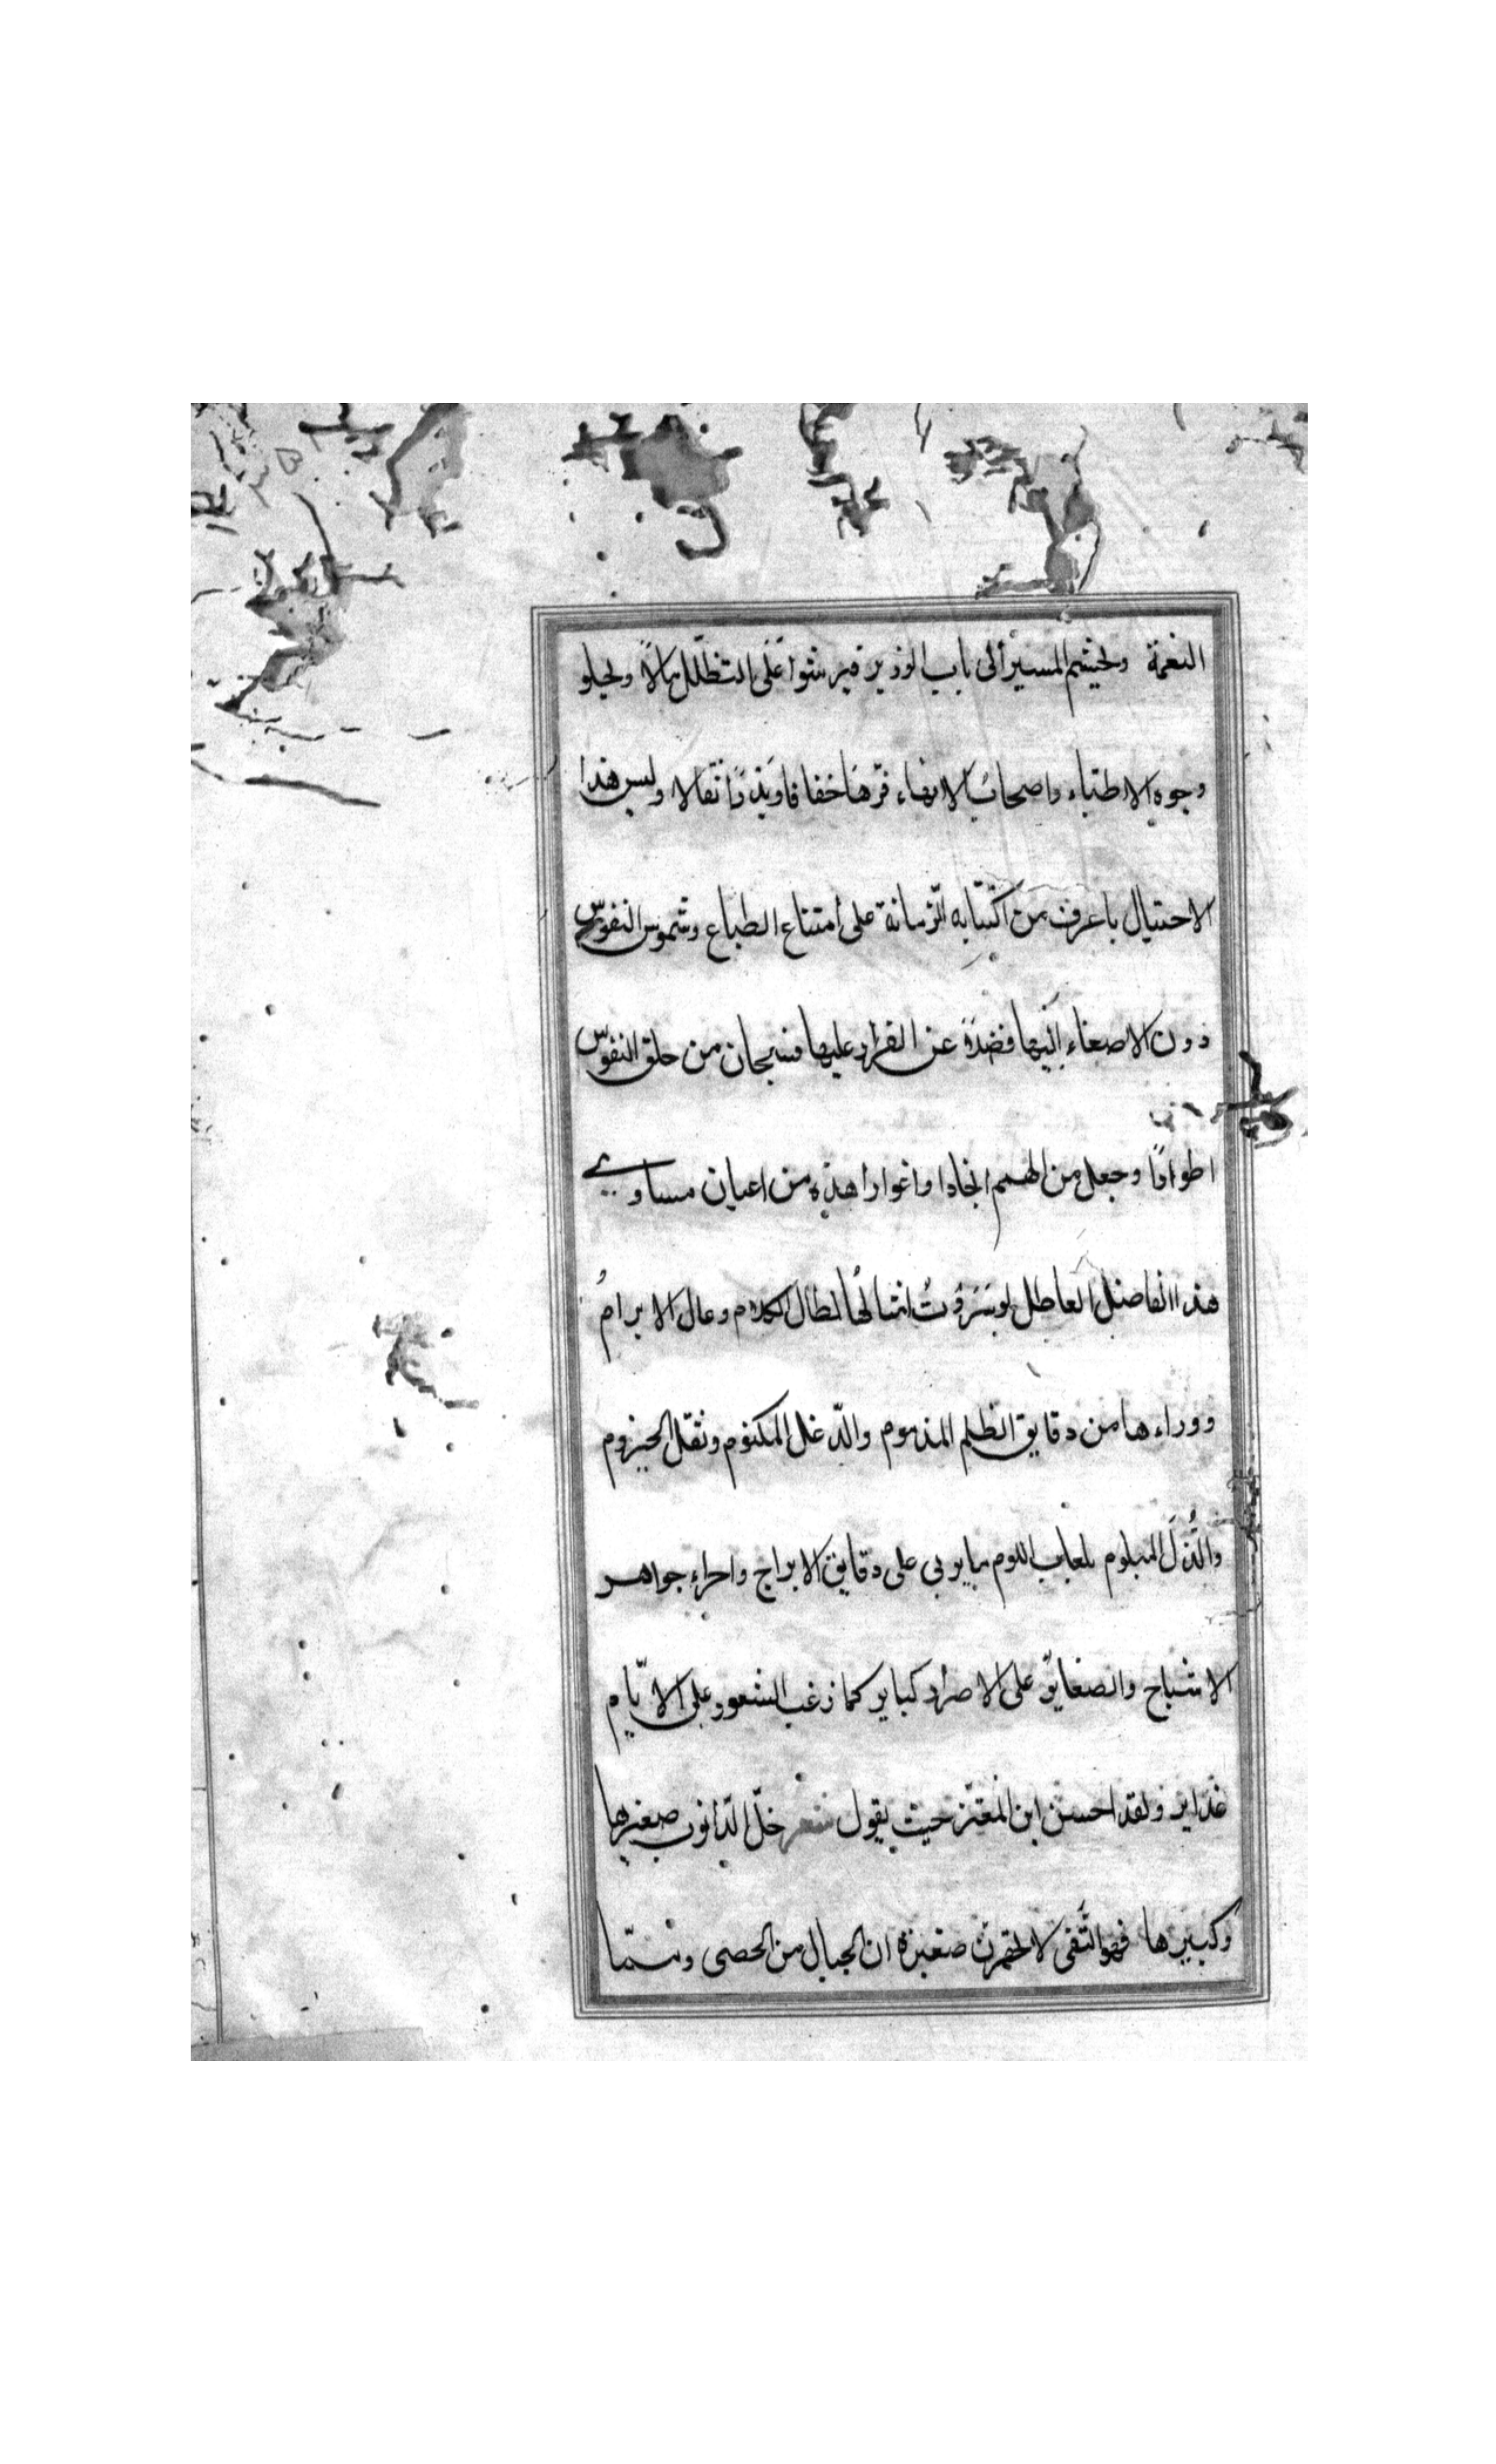 النعمة ولجشم المسير الى باب الوزير فير شوا على التظلل بالا ولجلو
وجوه الاطباء واصحاب الانهاء فرها خفافا وبذرا ثقالا وليس هذا
الاحتيال باعرف من اكتتابه الزمانة على امتناع الطباع وشموس النفوس
دون الاصغاء اليها فضلاً عن القرار عليها فسبحان من خلق النفوس
اطوادًا وجعل من الهمم انجادا واغوارا هذه من اعيان مساوي
هذا الفاضل العاطل لو سردت امثالها لطال الكلام وعال الابرام
ووراءها من دقايق الظلم المذموم والدغل المكتوم ونغل الحيزوم
والذل المبلوم بلعاب اللوم ما يوبى على دقايق الابراج واجزاء جواهر
الاشباح والصغاير على الاصرار كباير كما زغب الشعور على الايام
غداير ولقد احسن ابن المعتز حيث يقول شعر خل الذنوب صغيرها
وكبيرها فهو التقى لا تحقرن صغيرة ان الجبال من الحصى